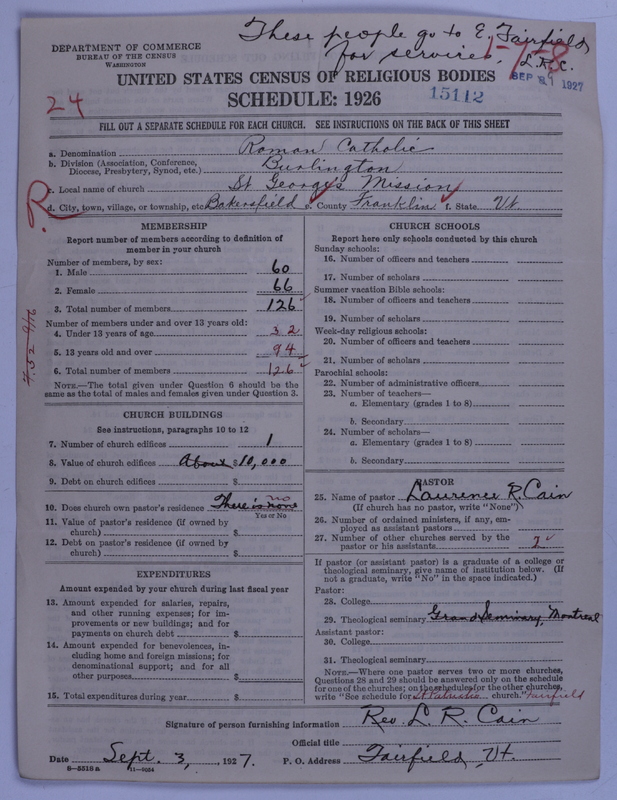 These people go to E. Fairfield
for services, L.R.C.
1-7-8
DEPARTMENT OF COMMERCE
BUREAU OF THE CENSUS
WASHINGTON
SEP 21 1927
UNITED STATES CENSUS OF RELIGIOUS BODIES
24
SCHEDULE: 1926
15112
FILL OUT A SEPARATE SCHEDULE FOR EACH CHURCH. SEE INSTRUCTIONS ON THE BACK OF THIS SHEET
a. Denomination Roman Catholic
b. Division (Association, Conference, Diocese, Presbytery, Synod, etc.) Burlington
c. Local name of church St George's Mission
R
d. City, town, village, or township, etc Bakersfield e. County Franklin f. State Vt.
MEMBERSHIP
Report number of members according to definition of
member in your church
Number of members, by sex:
1. Male 60
2. Female 66
3. Total number of members 126
Number of members under and over 13 years old:
4. Under 13 years of age 32
5. 13 years old and over 94
6. Total number of members 126
NOTE.—The total given under Question 6 should be the
same as the total of males and females given under Question 3.
CHURCH BUILDINGS
See instructions, paragraphs 10 to 12
7. Number of church edifices 1
8. Value of church edifices About $10,000
9. Debt on church edifices $
no
10. Does church own pastor's residence There is none
Yes or No
11. Value of pastor's residence (if owned by
church) $
12. Debt on pastor's residence (if owned by
church) $
EXPENDITURES
Amount expended by your church during last fiscal year
13. Amount expended for salaries, repairs,
and other running expenses; for im-
provements or new buildings; and for
payments on church debt $
14. Amount expended for benevolences, in-
cluding home and foreign missions; for
denominational support; and for all
other purposes $
15. Total expenditures during year $
CHURCH SCHOOLS
Report here only schools conducted by this church
Sunday schools:
16. Number of officers and teachers
17. Number of scholars
Summer vacation Bible schools:
18. Number of officers and teachers
19. Number of scholars
Week-day religious schools:
20. Number of officers and teachers
21. Number of scholars
Parochial schools:
22. Number of administrative officers
23. Number of teachers—
a. Elementary (grades 1 to 8)
b. Secondary
24. Number of scholars—
a. Elementary (grades 1 to 8)
b. Secondary
PASTOR
25. Name of pastor Laurence R. Cain
(If church has no pastor, write "None")
26. Number of ordained ministers, if any, em-
ployed as assistant pastors
27. Number of other churches served by the
pastor or his assistants 2
If pastor (or assistant pastor) is a graduate of a college or
theological seminary, give name of institution below. (If
not a graduate, write "No" in the space indicated.)
Pastor:
28. College
29. Theological seminary Grand Seminary, Montreal
Assistant pastor:
30. College
31. Theological seminary
NOTE.—Where one pastor serves two or more churches,
Questions 28 and 29 should be answered only on the schedule
for one of the churches; on the schedules for the other churches,
write "See schedule for St Patricks church." Fairfield
Signature of person furnishing information Rev. L. R. Cain
Official title
Date Sept. 3, 1927. P. O. Address Fairfield, Vt.
8—5518 a 11—9054